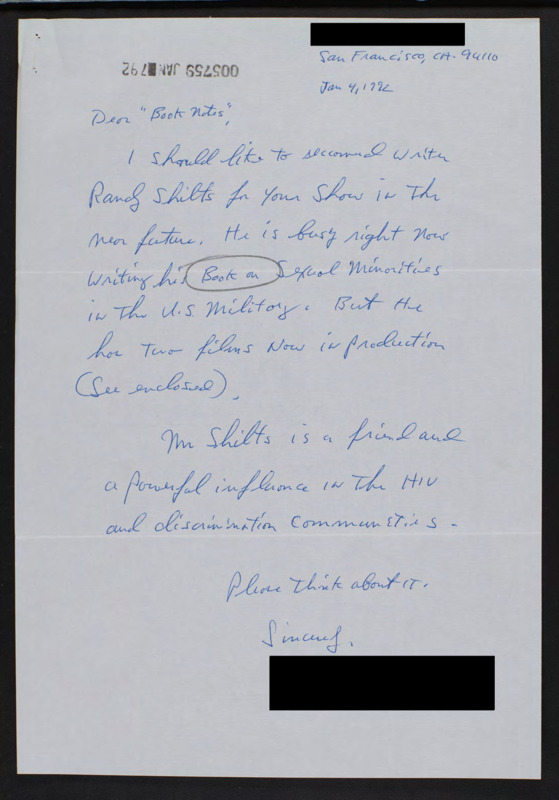 San Francisco, CA. 94110
005759 JAN 792
Jan 4, 1992
Dear "Book Notes",
I should like to reccomend writer
Randy Shilts for your show in the
near future. He is busy right now
writing his Book on Sexual Minorities
in the U.S. Military. But he
has two films now in production
(See enclosed).
Mr Shilts is a friend and
a powerful influence in the HIV
and discrimination communities.
Please think about it.
Sincerely,